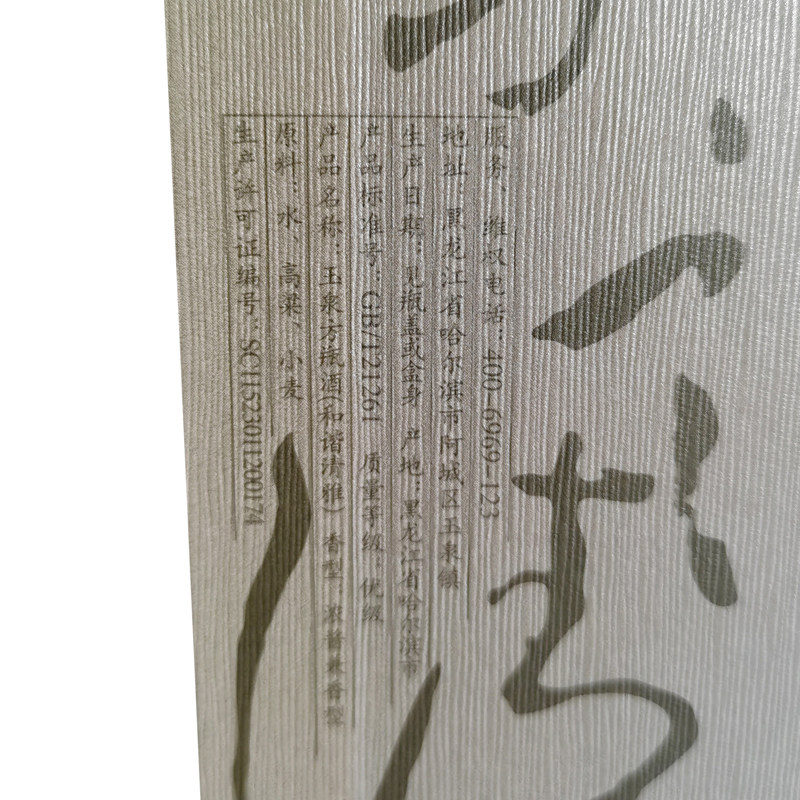 服务、维权电话：400-6969-123
地址：黑龙江省哈尔滨市阿城区玉泉镇
生产日期：见瓶盖或盒身 产地：黑龙江省哈尔滨市
产品标准号：GB/T21261 质量等级：优级
产品名称：玉泉·方瓶酒(和谐清雅) 香型：浓酱兼香型
原料：水、高粱、小麦
生产许可证编号：SC11523011200174